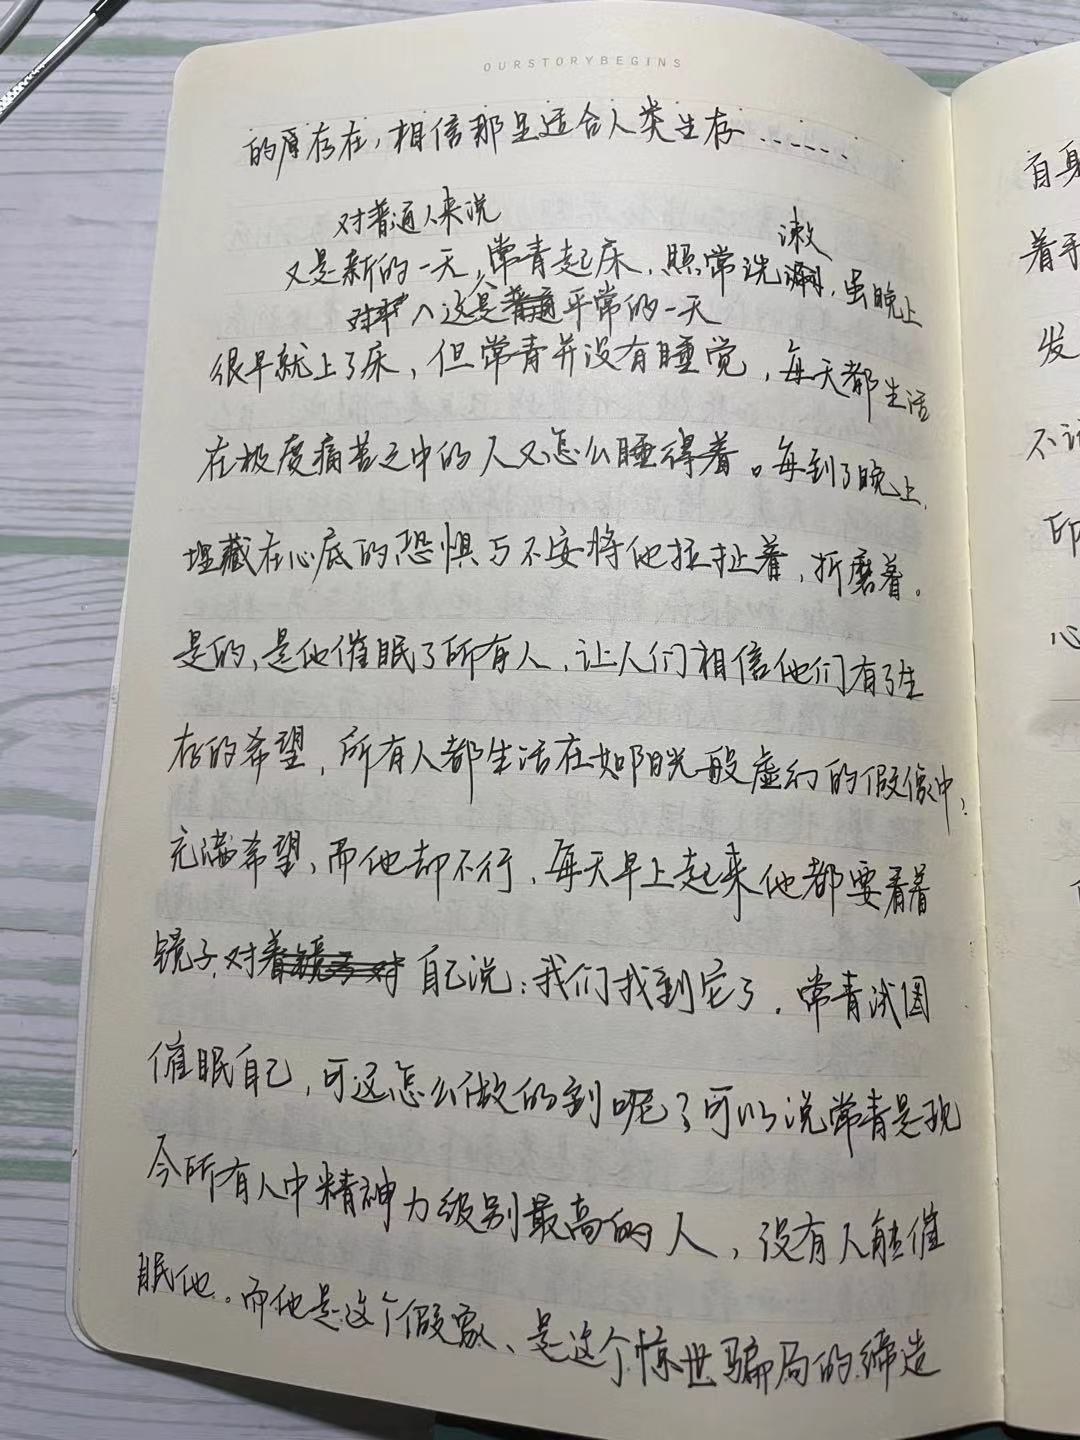 OURSTORYBEGINS
的存在，相信那是适合人类生存......
对普通人来说
漱
又是新的一天，常青起床，照常洗，虽晚上
这是平常的一天
很早就上了床，但常青并没有睡觉，每天都生活
在极度痛苦之中的人又怎么睡得着。每到了晚上，
埋藏在心底的恐惧与不安将他拉扯着，折磨着。
是的，是他催眠了所有人，让人们相信他们有了生
存的希望，所有人都生活在如阳光般虚幻的假像中，
充满希望，而他却不行，每天早上起来他都要看着
镜子，对自己说：我们找到它了。常青试图
催眠自己，可这怎么做的到呢？可以说常青是现
今所有人中精神力级别最高的人，没有人能催
眠他。而他是这个假象、是这个惊世骗局的缔造
自身
着手
发
不
印
心